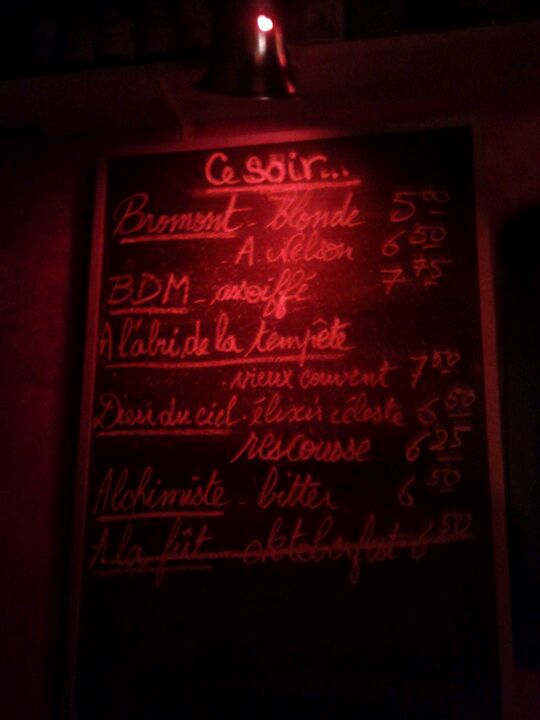 Ce soir...
Bromont - blonde 5 00
A Nelson 6 50
BDM - assoiffé 7 75
A l'abri de la tempête
. vieux couvent 7 50
Dieu du ciel . élixir céleste 6 50
rescousse 6 25
Alchimiste - bitter 6 50
A la fût oktoberfest 6 50